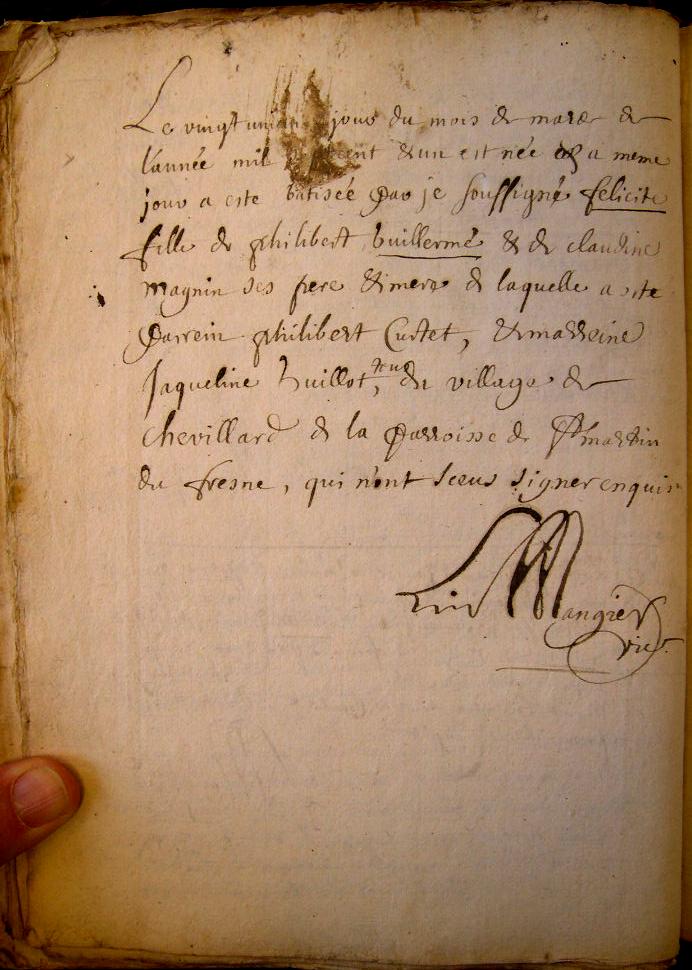 Le vingt unième jour du mois de mars de
l'année mil sept cent & un est née & a meme
jour a este batisée par je soussigné felicite
fille de philibert Guillermé & de claudine
Magnin ses pere & mere de laquelle a este
parrein philibert Curtet, & marreine
Jaqueline Guillot, tous du village de
chevillard de la parroisse de St martin
du fresne, qui n'ont sceus signer enquis
Mangier
vic.